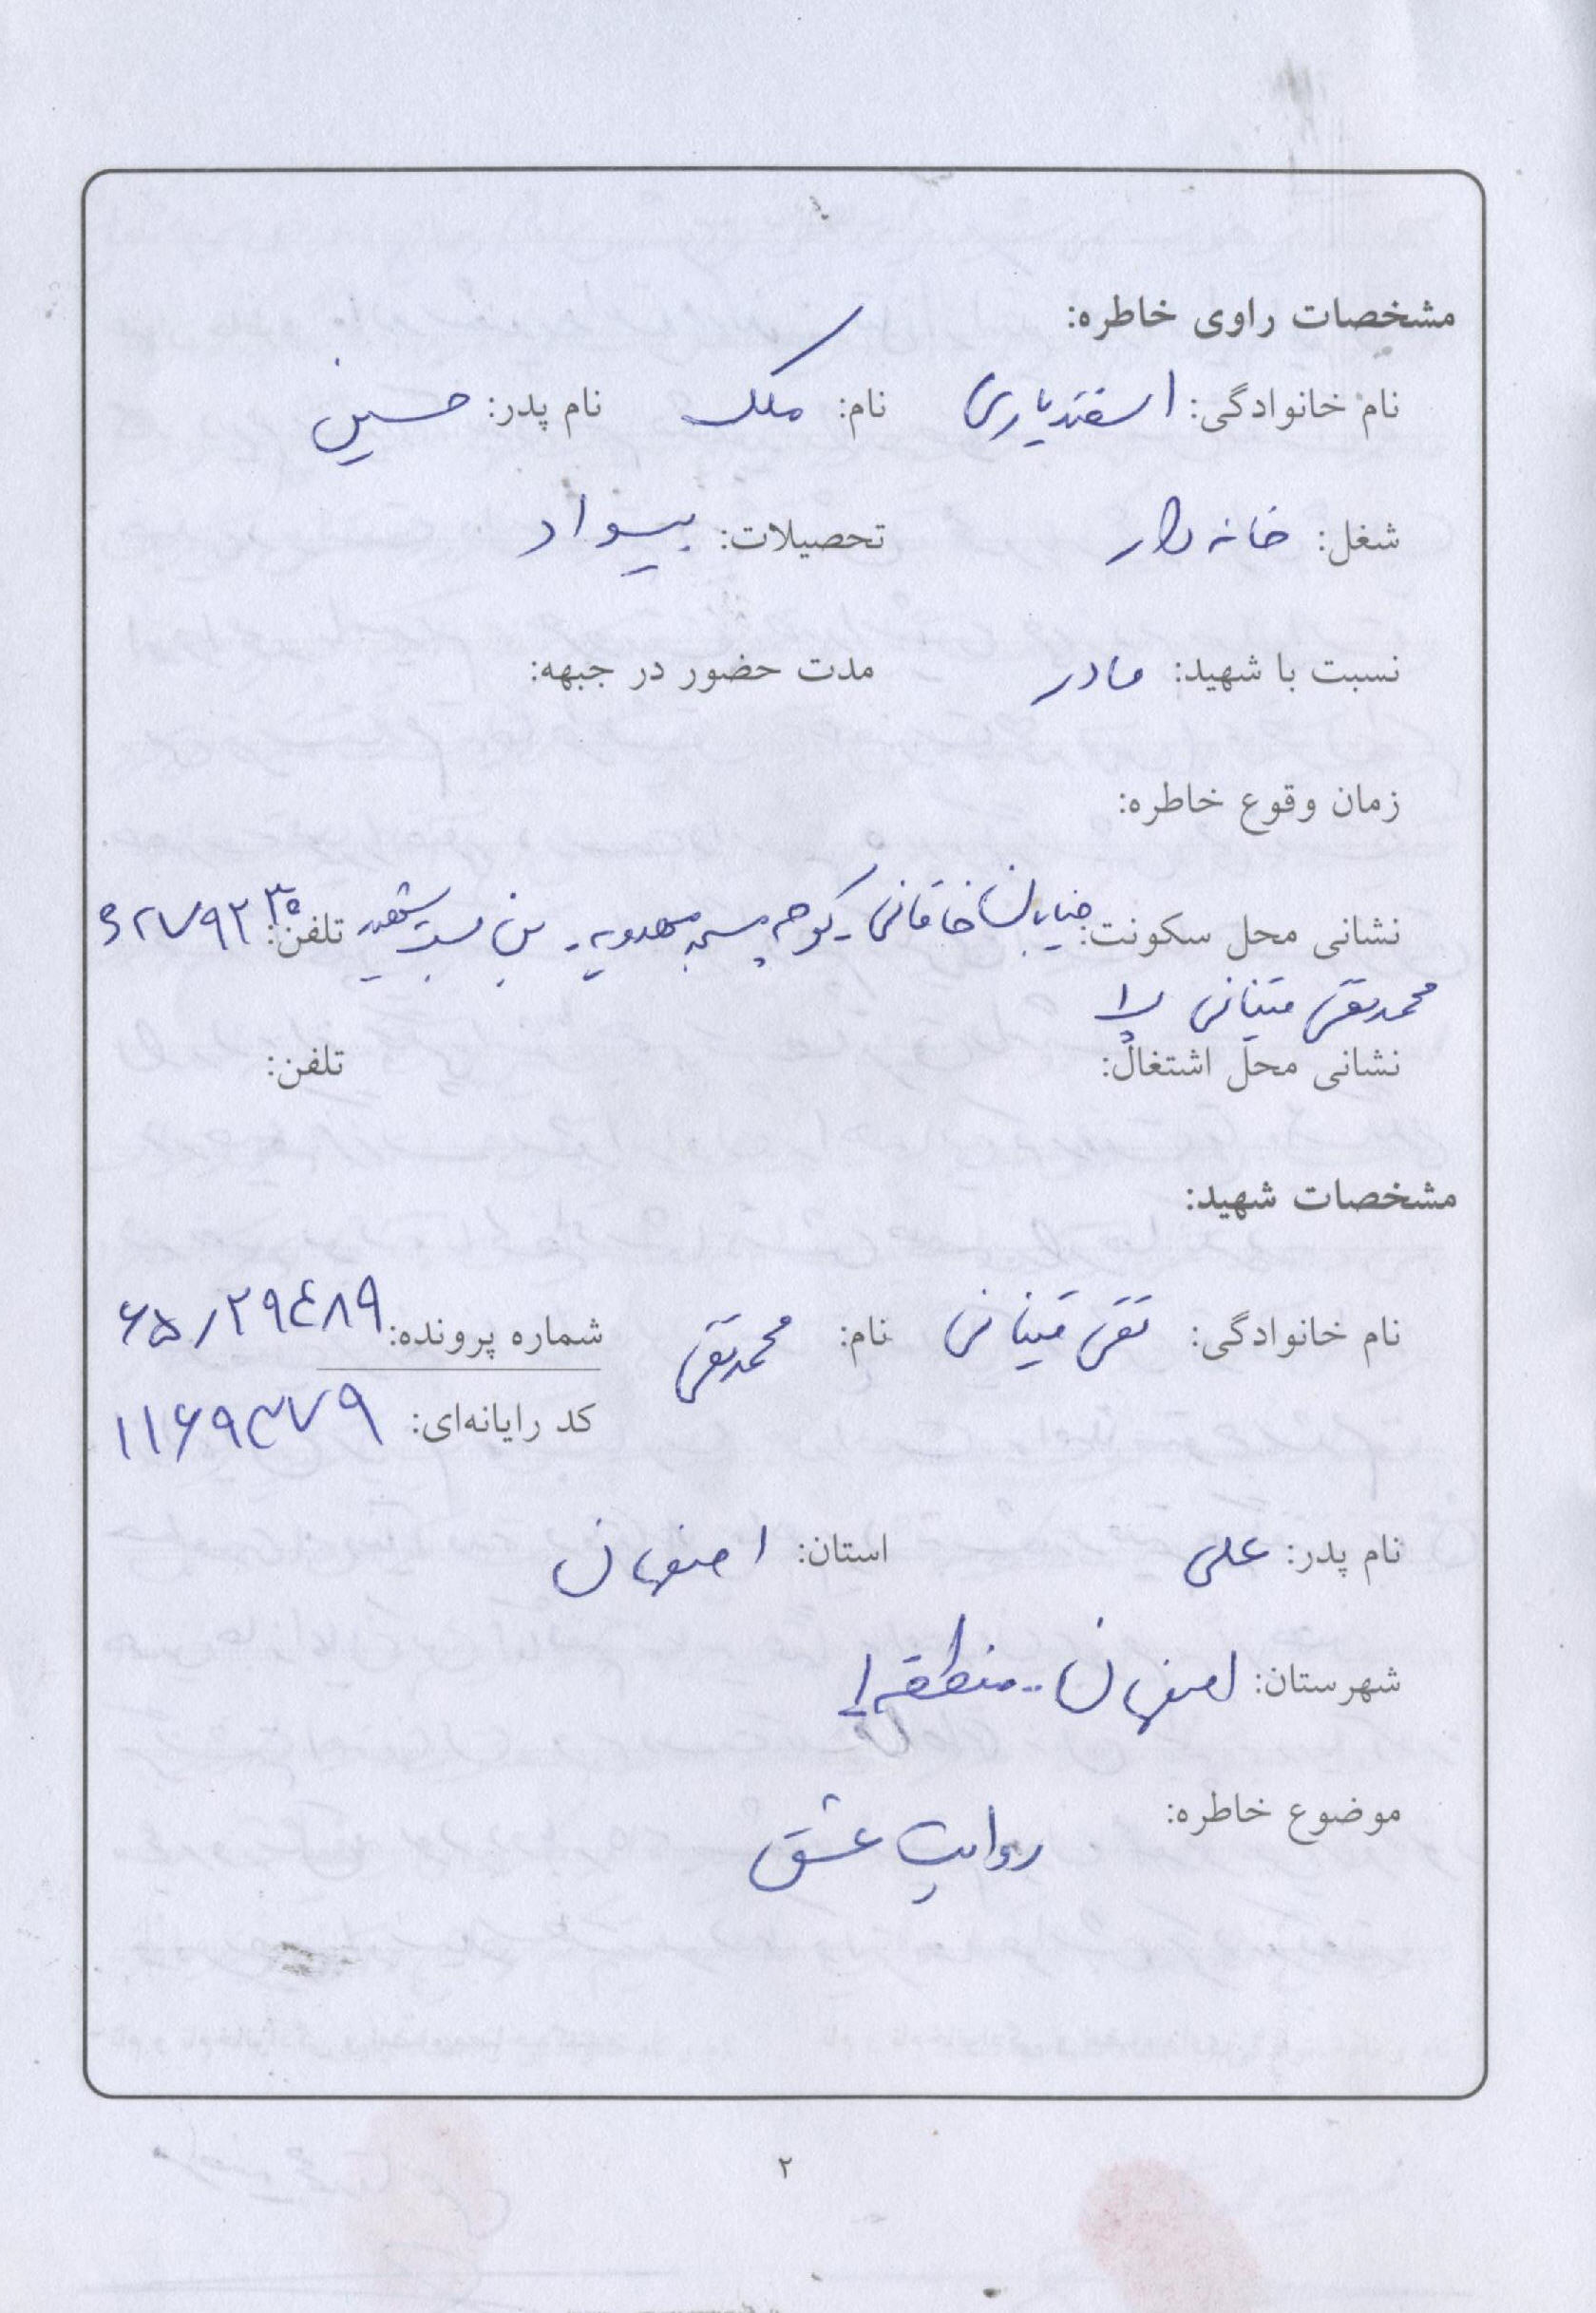 مشخصات راوی خاطره:
نام خانوادگی: اسفندیاری نام: ملک نام پدر: حسین
شغل: خانه دار تحصیلات: بیسواد
نسبت با شهید: مادر مدت حضور در جبهه:
زمان وقوع خاطره:
نشانی محل سکونت: خیابان خاقانی - کوچه مسجد مهدویه - بن بست شهید تلفن: ۶۲۷۹۲۳۵
محمدتقی متینانی پلا
نشانی محل اشتغال: تلفن:
مشخصات شهید:
نام خانوادگی: تقی نام: محمدتقی شماره پرونده: ۶۵/۲۹۴۸۹
کد رایانه‌ای: ۱۱۶۹۳۷۹
نام پدر: علی استان: اصفهان
شهرستان: اصفهان - منطقه ۱
موضوع خاطره: روایت عشق
۲